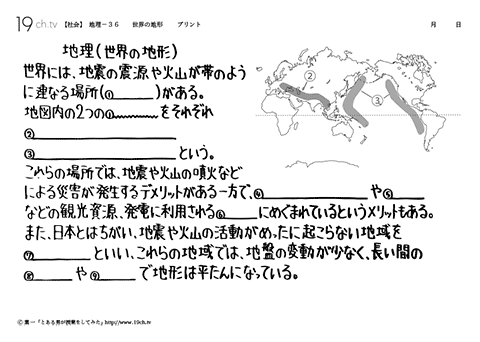 19ch.tv 【社会】 地理－36 世界の地形 プリント 月 日
地理(世界の地形)
世界には、地震の震源や火山が帯のよう
に連なる場所(①　　　)がある。
地図内の2つの①　　　をそれぞれ
②
③　　　という。
これらの場所では、地震や火山の噴火など
による災害が発生するデメリットがある一方で、④　　　や⑤
などの観光資源、発電に利用される⑥　　　にめぐまれているというメリットもある。
また、日本とはちがい、地震や火山の活動がめったに起こらない地域を
⑦　　　といい、これらの地域では、地盤の変動が少なく、長い間の
⑧　　　や⑨　　　で地形は平たんになっている。
②
③
Ⓒ 葉一「とある男が授業をしてみた」http://www.19ch.tv